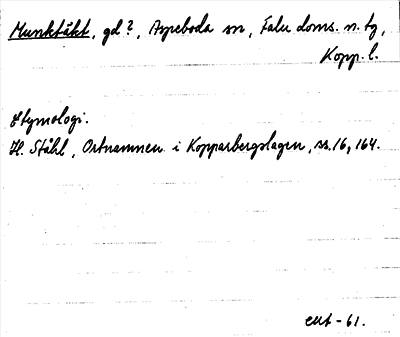 Munktäkt, gd?, Aspeboda sn, Falu doms. n. tg,
Kopp. l.
Etymologi.
H. Ståhl, Ortnamnen i Kopparbergslagen, ss. 16, 164.
-61.